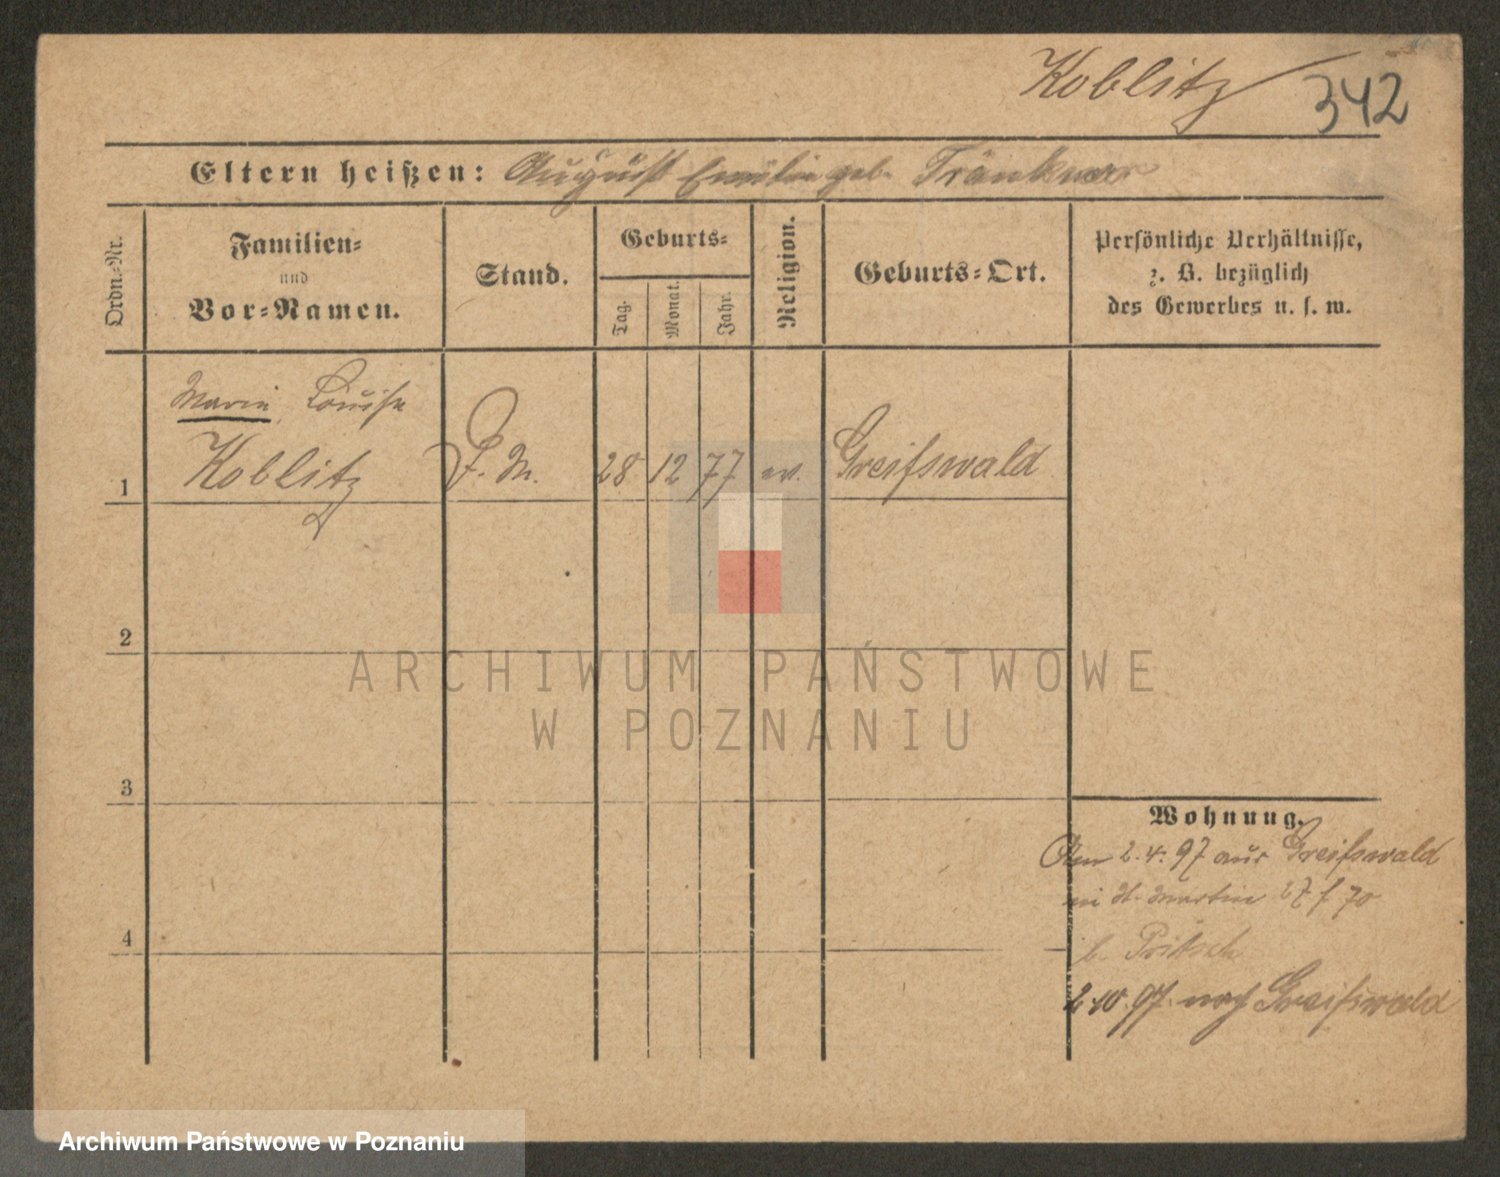 Koblitz 342
Eltern heißen: August Emilie geb. Tränkner
Ordn.=Nr.
Familien=
und
Vor=Namen.
Stand.
Geburts=
Tag.
Monat.
Jahr.
Religion.
Geburts=Ort.
Persönliche Verhältnisse,
z. B. bezüglich
des Gewerbes u. s. w.
Marie Louise
1 Koblitz P. M. 28 12 77 ev. Greifswald
2
3
4
Wohnung.
2. 4. 97 aus Greifswald
St. Martin 27 70
b.
2. 10. 97. nach Greifswald
ARCHIWUM PAŃSTWOWE
W POZNANIU
Archiwum Państwowe w Poznaniu